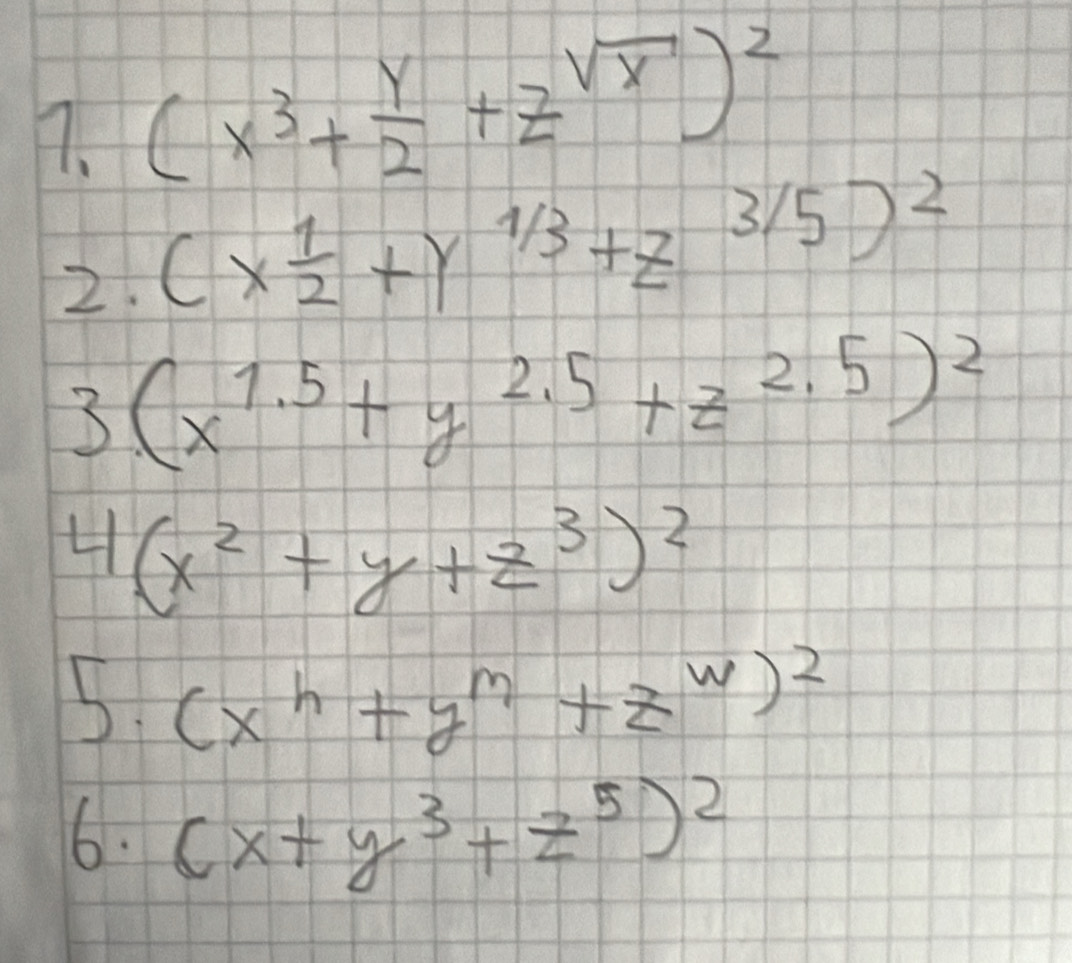 1. (x³ + Y/2 + z^√x)²
2. (x 1/2 + Y^1/3 + z^3/5)²
3.(x^1.5 + y^2.5 + z^2.5)²
4(x² + y + z³)²
5. (x^n + y^m + z^w)²
6. (x + y³ + z⁵)²